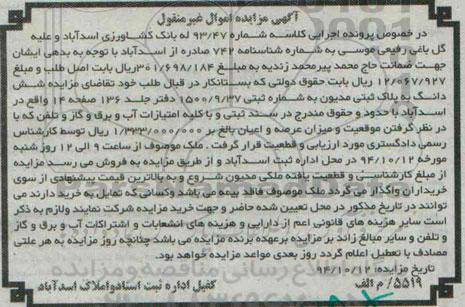 آگهی مزایده اموال غیر منقول
در خصوص پرونده اجرایی کلاسه شماره ۹۳/۴۷ له بانک کشاورزی اسدآباد و علیه
گل باغی رفیعی موسی به شماره شناسنامه ۷۴۲ صادره از اسدآباد با توجه به بدهی ایشان
جهت ضمانت حاج محمد پیرمحمد زندیه به مبلغ ۳۰۱/۶۹۸/۱۸۴ریال بابت اصل طلب و مبلغ
۱۲/۰۶۷/۹۲۷ ریال بابت حقوق دولتی که بستانکار در قبال طلب خود تقاضای مزایده شش
دانگ به پلاک ثبتی مدیون به شماره ثبتی ۱۵۰۰/۹/۳۷ دفتر جلد ۱۳۶ صفحه ۱۴ واقع در
اسدآباد با حدود و حقوق مندرج در سند ثبتی و با کلیه امتیازات آب و برق و گاز و تلفن که با
در نظر گرفتن موقعیت و میزان عرصه و اعیان بالغ بر ۱/۳۳۳/۰۰۰/۰۰۰ ریال توسط کارشناس
رسمی دادگستری مورد ارزیابی و قطعیت قرار گرفت . ملک موصوف از ساعت ۹ الی ۱۲ روز شنبه
مورخه ۹۴/۱۰/۱۲ در محل اداره ثبت اسدآباد و از طریق مزایده به فروش می رسد مزایده
از مبلغ کارشناسی و قطعیت یافته ملکی مدیون شروع و به بالاترین قیمت پیشنهادی از سوی
خریداران واگذار می گردد ملک موصوف فاقد بیمه می باشد وکسانی که تمایل به خرید دارند می
توانند در تاریخ مذکور در محل تعیین شده حاضر و جهت خرید مزایده شرکت نمایند ولازم به ذکر
است سایر هزینه های قانونی اعم از دارایی و هزینه های انشعابات و اشتراکات آب و برق و گاز
و تلفن و سایر مبالغ زائد بر مزایده برعهده برنده مزایده می باشد چنانچه روز مزایده به هر علتی
مصادف با تعطیل اعلام گردد روز بعدی مواعد مزایده خواهد بود.
تاریخ مزایده: ۹۴/۱۰/۱۲
۵۵۱۹/ م الف
کفیل اداره ثبت اسنادواملاک اسدآباد